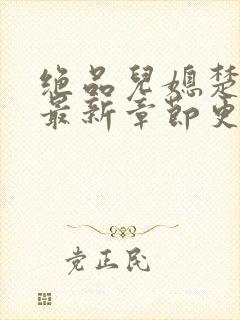 绝品儿媳楚
最新章节更
党正民